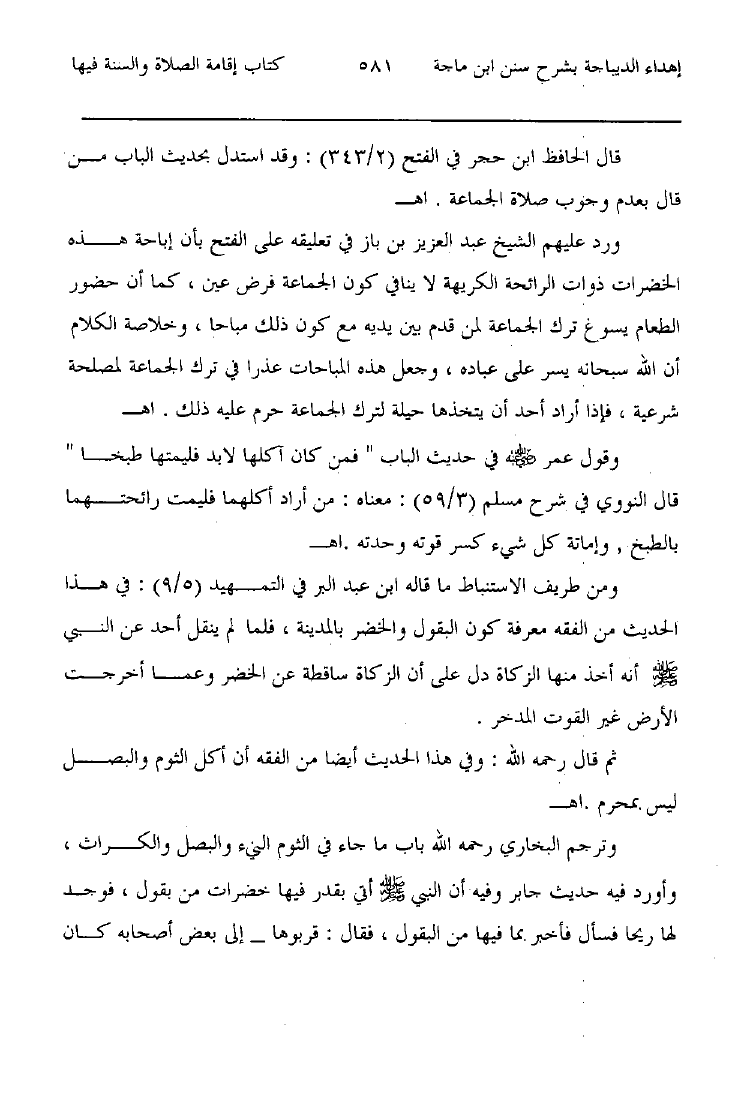 إهداء الديباجة بشرح سنن ابن ماجة ٥٨١ كتاب إقامة الصلاة والسنة فيها
قال الحافظ ابن حجر في الفتح (٣٤٣/٢) : وقد استدل بحديث الباب مــن
قال بعدم وجوب صلاة الجماعة . اهــ
ورد عليهم الشيخ عبد العزيز بن باز في تعليقه على الفتح بأن إباحة هـــذه
الخضرات ذوات الرائحة الكريهة لا ينافي كون الجماعة فرض عين ، كما أن حضور
الطعام يسوغ ترك الجماعة لمن قدم بين يديه مع كون ذلك مباحا ، وخلاصة الكلام
أن الله سبحانه يسر على عباده ، وجعل هذه المباحات عذرا في ترك الجماعة لمصلحة
شرعية ، فإذا أراد أحد أن يتخذها حيلة لترك الجماعة حرم عليه ذلك . اهــ
وقول عمر ﷺ في حديث الباب " فمن كان آكلها لابد فليمتها طبخــا "
قال النووي في شرح مسلم (٥٩/٣) : معناه : من أراد أكلهما فليمت رائحتــهما
بالطبخ , وإماتة كل شيء كسر قوته وحدته .اهــ
ومن طريف الاستنباط ما قاله ابن عبد البر في التمــهيد (٩/٥) : في هــذا
الحديث من الفقه معرفة كون البقول والخضر بالمدينة ، فلما لم ينقل أحد عن النــبي
ﷺ أنه أخذ منها الزكاة دل على أن الزكاة ساقطة عن الخضر وعمــا أخرجــت
الأرض غير القوت المدخر .
ثم قال رحمه الله : وفي هذا الحديث أيضا من الفقه أن أكل الثوم والبصــل
ليس بمحرم .اهــ
وترجم البخاري رحمه الله باب ما جاء في الثوم النيء والبصل والكــراث ،
وأورد فيه حديث جابر وفيه أن النبي ﷺ أتي بقدر فيها خضرات من بقول ، فوجــد
لها ريحا فسأل فأخبر بما فيها من البقول ، فقال : قربوها ــ إلى بعض أصحابه كــان